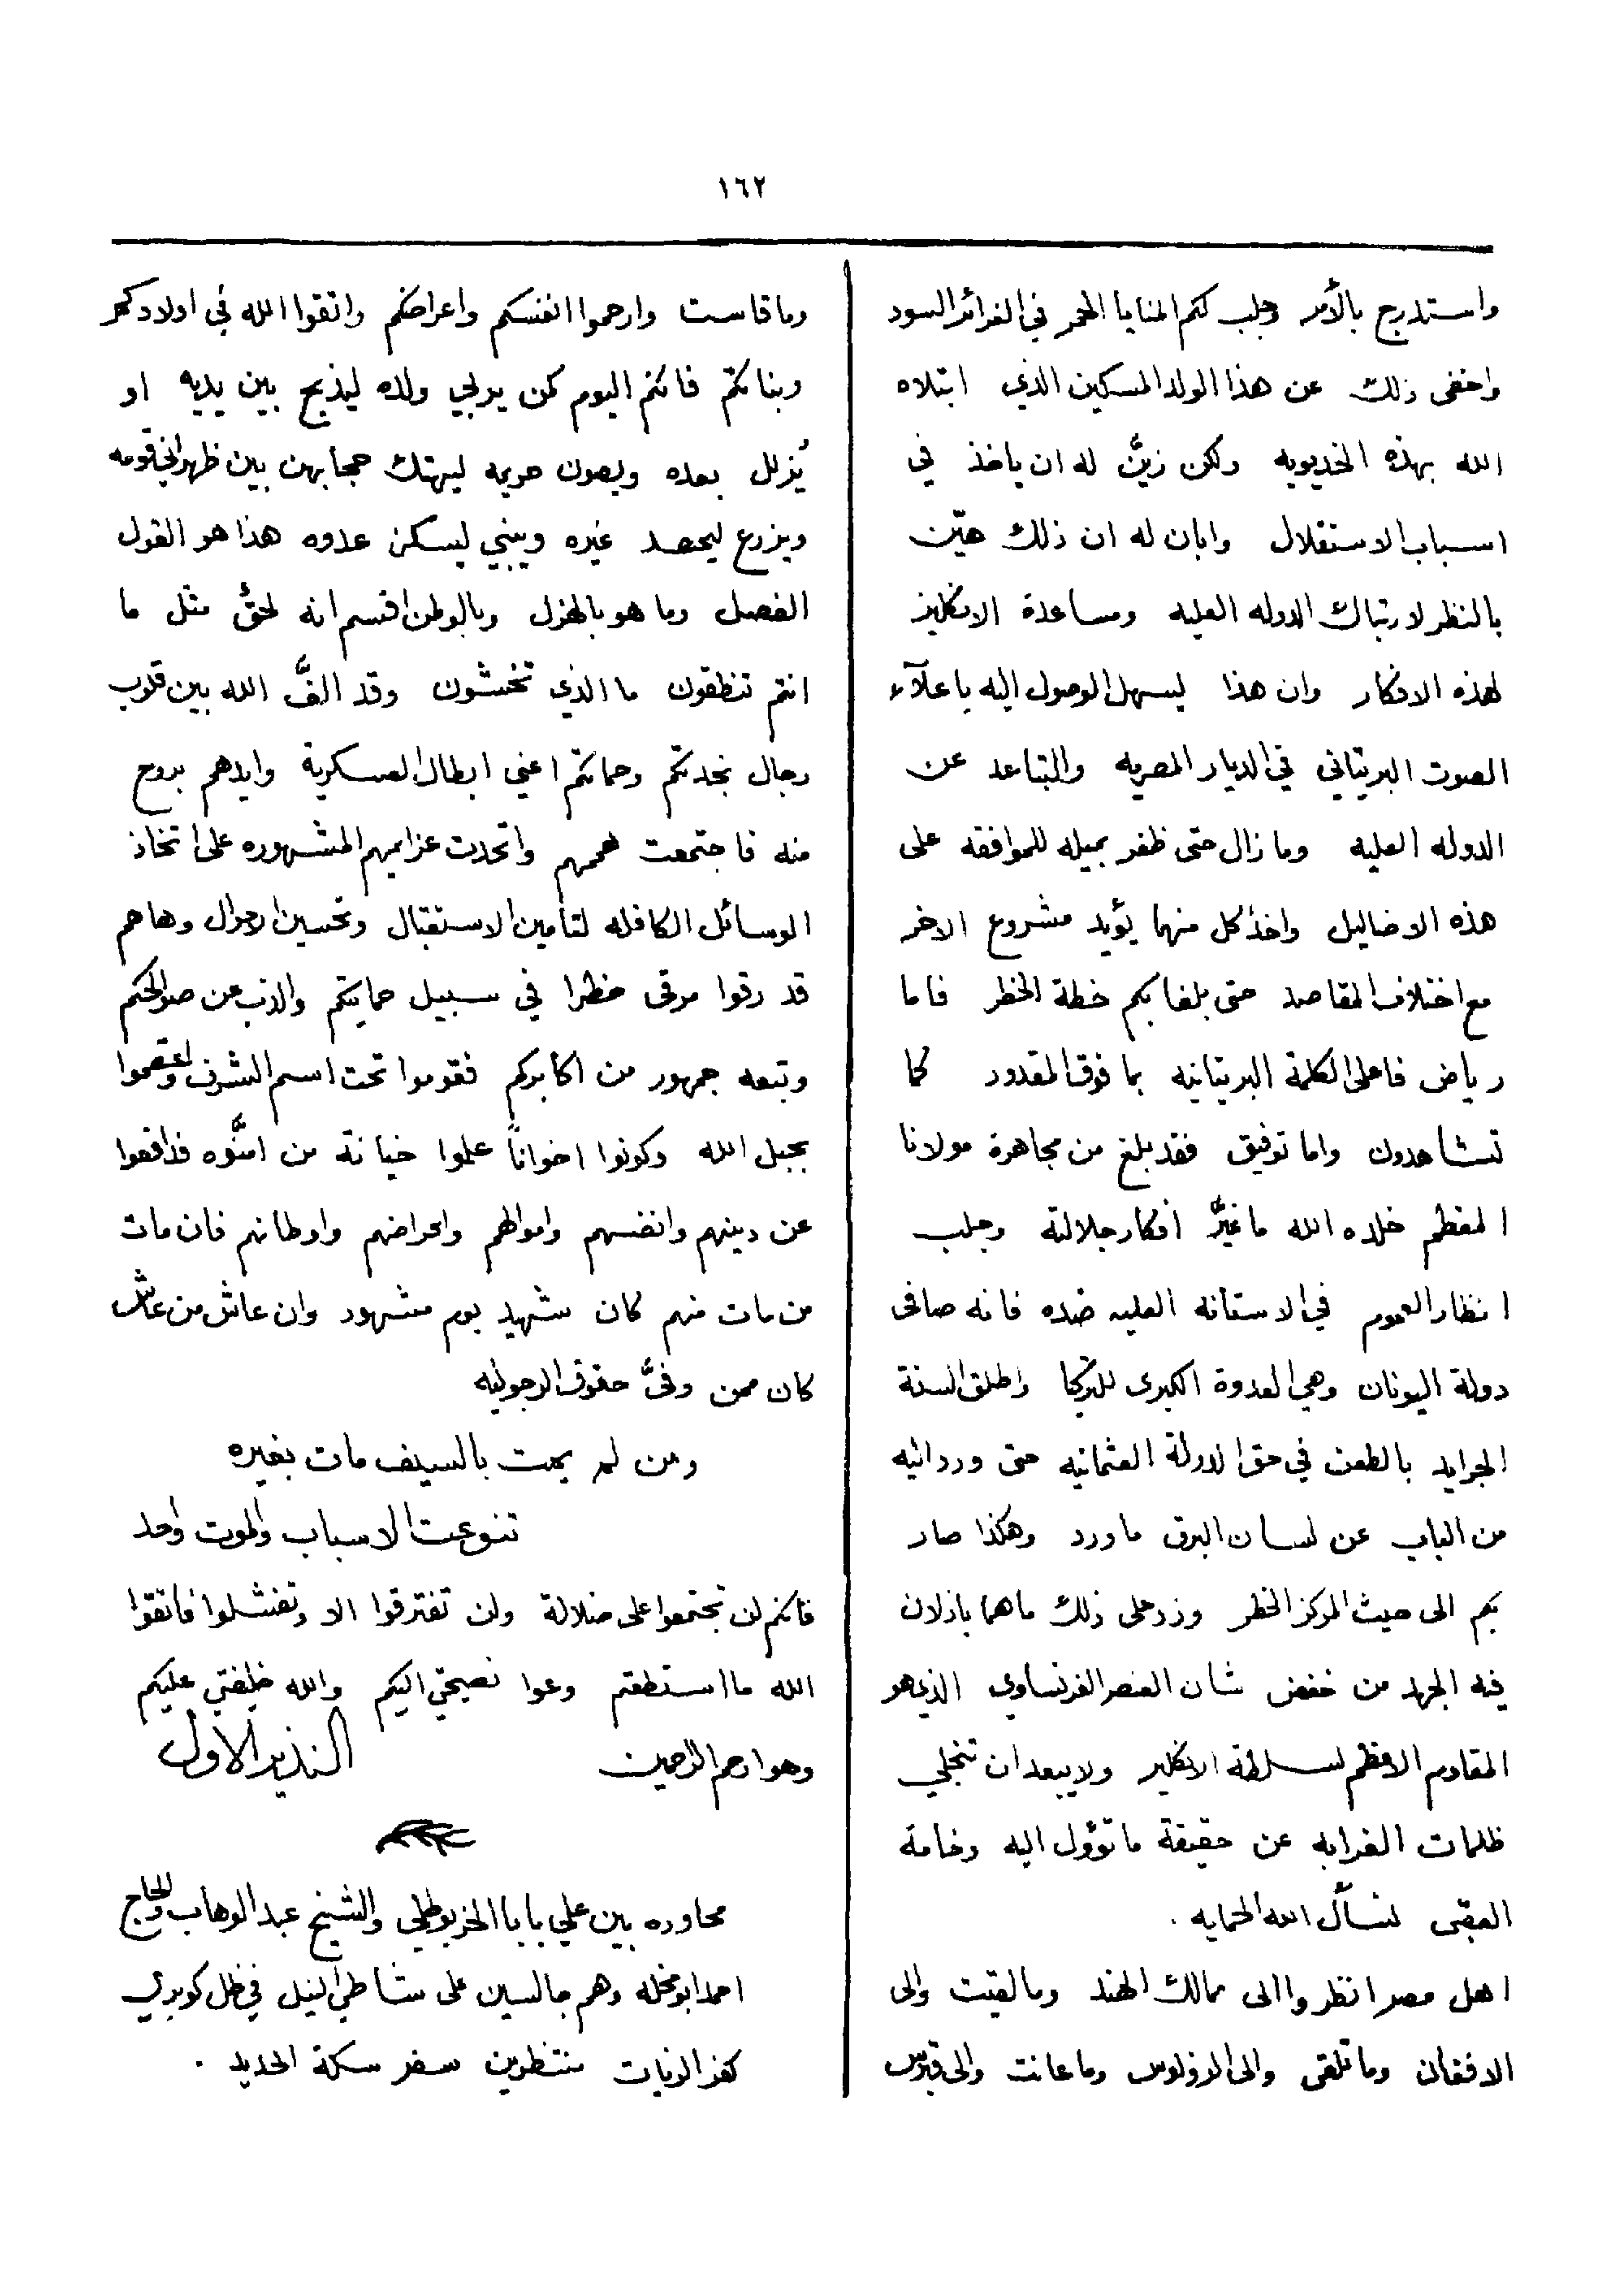 ١٦٢
واستدرج بالأمر وجلب لكم المنايا الحمر في الغرائر السود
واخفى ذلك عن هذا الولد المسكين الذي ابتلاه
الله بهذه الخديويه ولكن زيَّن له ان ياخذ في
اسباب الاستقلال وابان له ان ذلك هيّن
بالنظر لارتباك الدوله العليه ومساعدة الانكليز
لهذه الافكار وان هذا ليسهل الوصول اليه باعلآء
الصوت البريتاني في الديار المصريه والتباعد عن
الدوله العليه وما زال حتى ظفر بميله للموافقه على
هذه الاضاليل واخذ كل منهما يؤيد مشروع الاخر
مع اختلاف المقاصد حتى بلغا بكم خطة الخطر فاما
رياض فاعلى الكلمة البريتانيه بما فوق المقدور كما
تشاهدون واما توفيق فقد بلغ من مجاهرة مولانا
المعظم خلده الله ما غيَّر أفكار جلالته وجلب
انظار العموم في الاستانه العليه ضده فانه صافى
دولة اليونان وهي العدوة الكبرى للتركيا واطلق السنة
الجرايد بالطعن في حق الدولة العثمانيه حتى ورد اليه
من الباب عن لسان البرق ما ورد وهكذا صار
بكم الى حيث المركز الخطر وزد على ذلك ما هما باذلان
فيه الجهد من خفض شان العنصر الفرنساوي الذي هو
المقاوم الاعظم لسلطة الانكليز ولا يبعد ان تنجلي
ظلمات الغرابه عن حقيقة ما تؤول اليه وخامة
العقبى نسأل الله الحمايه .
اهل مصر انظروا الى ممالك الهند وما لقيت والى
الافغان وما تلقى والى الزولوس وما عانت والى قبرس
وما قاست وارحموا انفسكم واعراضكم واتقوا الله في اولادكم
وبناتكم فانكم اليوم كمن يربي ولده ليذبح بين يديه او
يُذلل بعده ويصون حريمه ليهتك حجابهن بين ظهراني قومه
ويزرع ليحصد غيره ويبني ليسكن عدوه هذا هو القول
الفصل وما هو بالهزل وبالوطن اقسم انه لحقٌ مثل ما
انتم تنطقون ما الذي تخشون وقد الفَّ الله بين قلوب
رجال نجدتكم وحماتكم اعني ابطال العسكرية وايدهم بروح
منه فاجتمعت هممهم واتحدت عزايمهم المشهوره على اتخاذ
الوسائل الكافله لتأمين الاستقبال وتحسين الاحوال وها هم
قد رقوا مرقى خطرا في سبيل حمايتكم والذب عن صوالحكم
وتبعه جمهور من اكابركم فقوموا تحت اسم الشرف واعتصموا
بحبل الله وكونوا اخواناً علموا خيانة من امنَّوه فدافعوا
عن دينهم وانفسهم واموالهم واعراضهم واوطانهم فان مات
من مات منهم كان شهيد يوم مشهود وان عاش من عاش
كان ممن وفىَّ حقوق الرجوليه
ومن لم يمت بالسيف مات بغيره
تنوعت الاسباب والموت واحد
فانكم لن تجتمعوا على ضلالة ولن تفترقوا الا وتفشلوا فاتقوا
الله ما استطعتم وعوا نصيحتي اليكم والله خليفتي عليكم
وهو ارحم الراحمين
النذير الاول
محاوره بين علي بابا الخربوطلي والشيخ عبد الوهاب والحاج
احمد ابو مخله وهم جالسين على شاطئ النيل في ظل كوبري
كفر الزيات منتظرين سفر سكة الحديد .